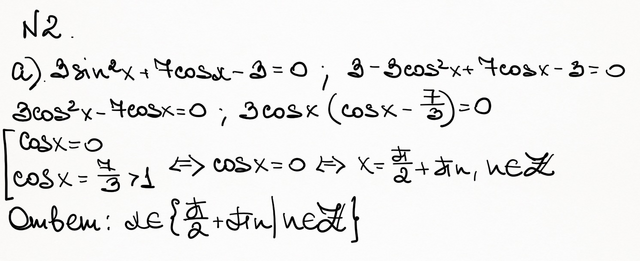 N2.
а). 3sin²x + 7cosx - 3 = 0 ; 3 - 3cos²x + 7cosx - 3 = 0
3cos²x - 7cosx = 0 ; 3cosx (cosx - 7/3) = 0
[ cosx = 0
cosx = 7/3 > 1 ⇔ cosx = 0 ⇔ x = π/2 + πn, n ∈ ℤ
Ответ: x ∈ {π/2 + πn | n ∈ ℤ}